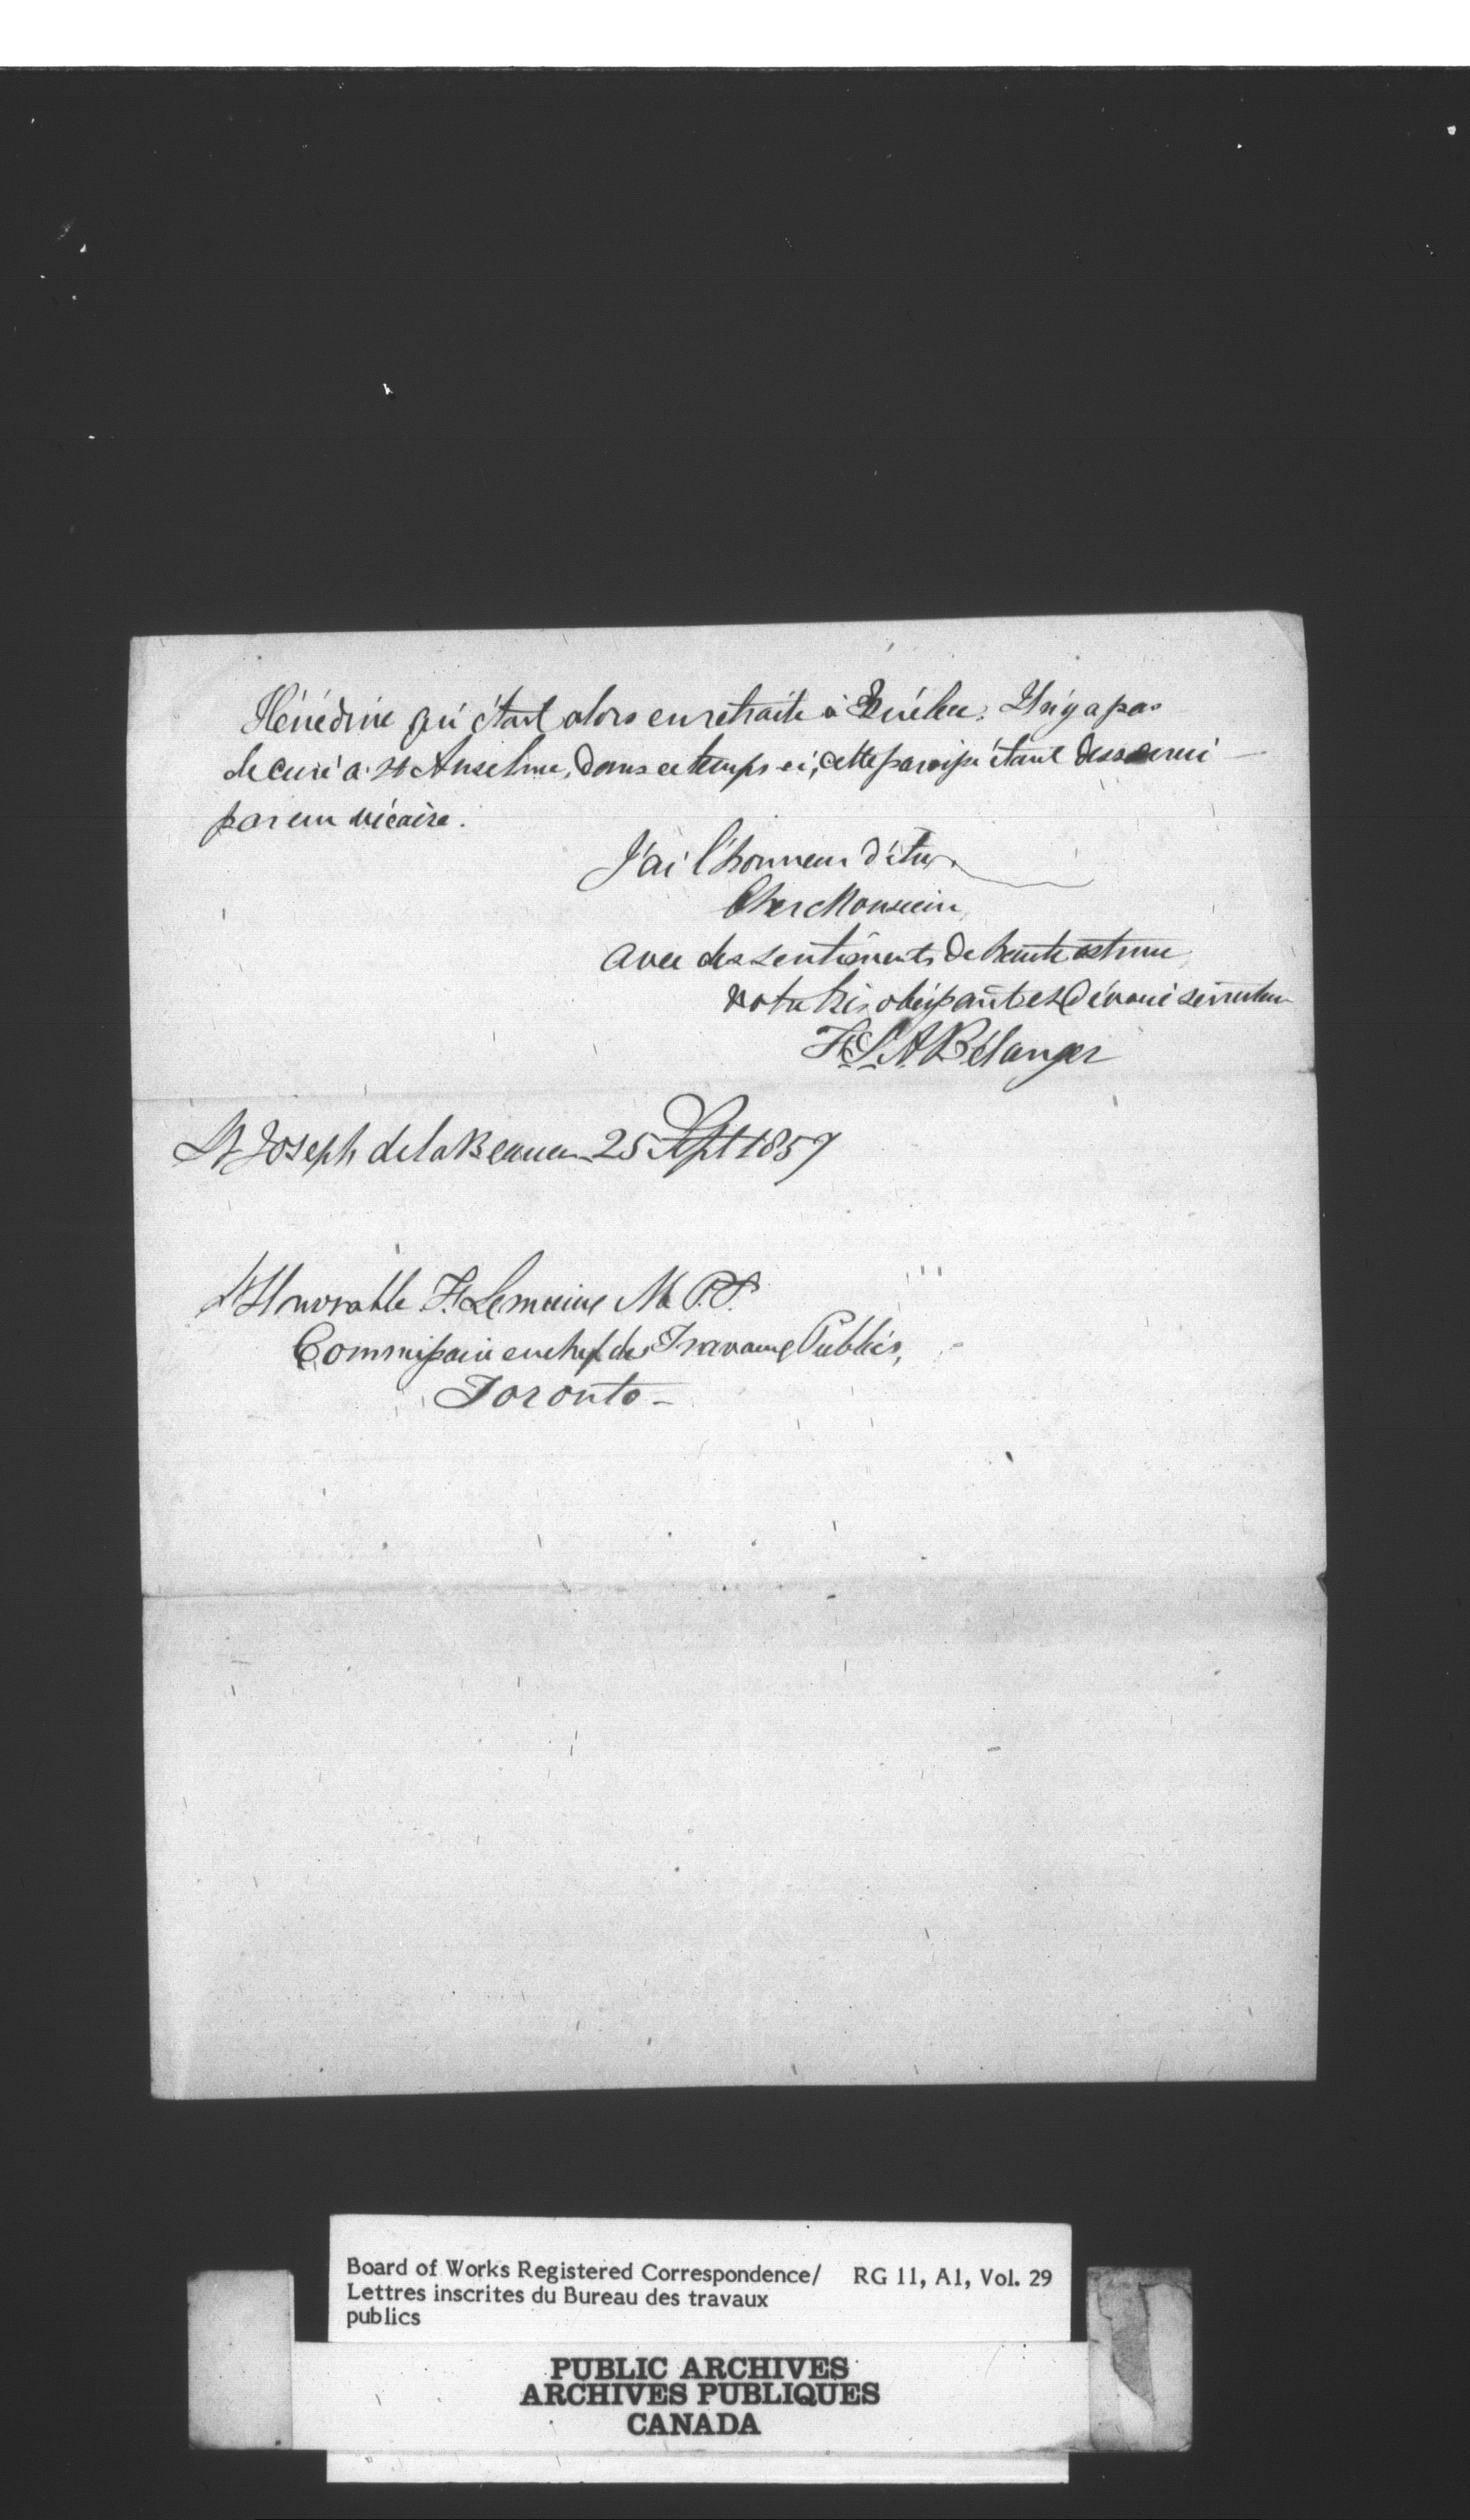 Hénédine qui était alors en retraite à Québec. Il n'y a pas
de curé à St Anselme, dans ce temps ci, cette paroisse étant desservi
par un vicaire.
J'ai l'honneur d'être
Cher Monsieur,
avec des sentiments de haute estime
votre très obéissant et dévoué serviteur
H. S. A. Bélanger
St Joseph de la Beauce 25 Sept 1857
L'Honorable F. Lemieux M. P. P.
Commissaire en chef des Travaux Publics,
Toronto -
Board of Works Registered Correspondence/ RG 11, A1, Vol. 29
Lettres inscrites du Bureau des travaux
publics
PUBLIC ARCHIVES
ARCHIVES PUBLIQUES
CANADA